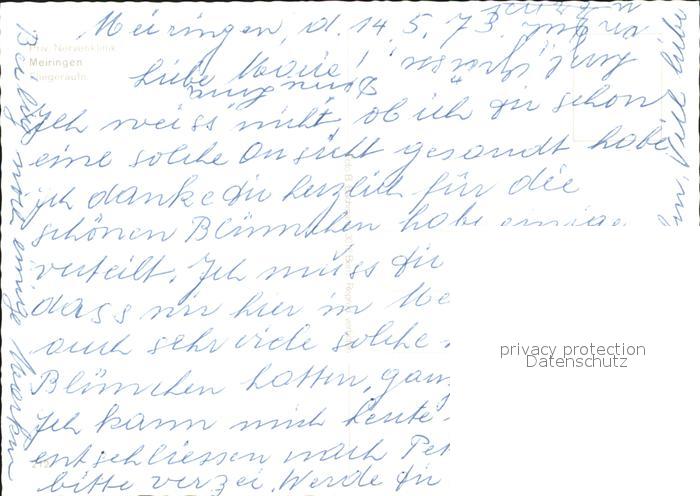 Meiringen, d. 14. 5. 73.
Priv. Nervenklinik
Meiringen
Fliegeraufn.
Liebe Marie!
Ich weiss nicht, ob ich dir schon
eine solche Ansicht gesandt habe
ich danke dir herzlich für die
schönen Blümchen habe einige
verteilt. Ich muss dir
dass wir hier in Me
auch sehr viele solche
Blümchen hatten, gan
Ich kann mich heute
entschliessen nach
bitte verzei. Werde dir
Beilig noch einige Marken
viel liebe
privacy protection
Datenschutz